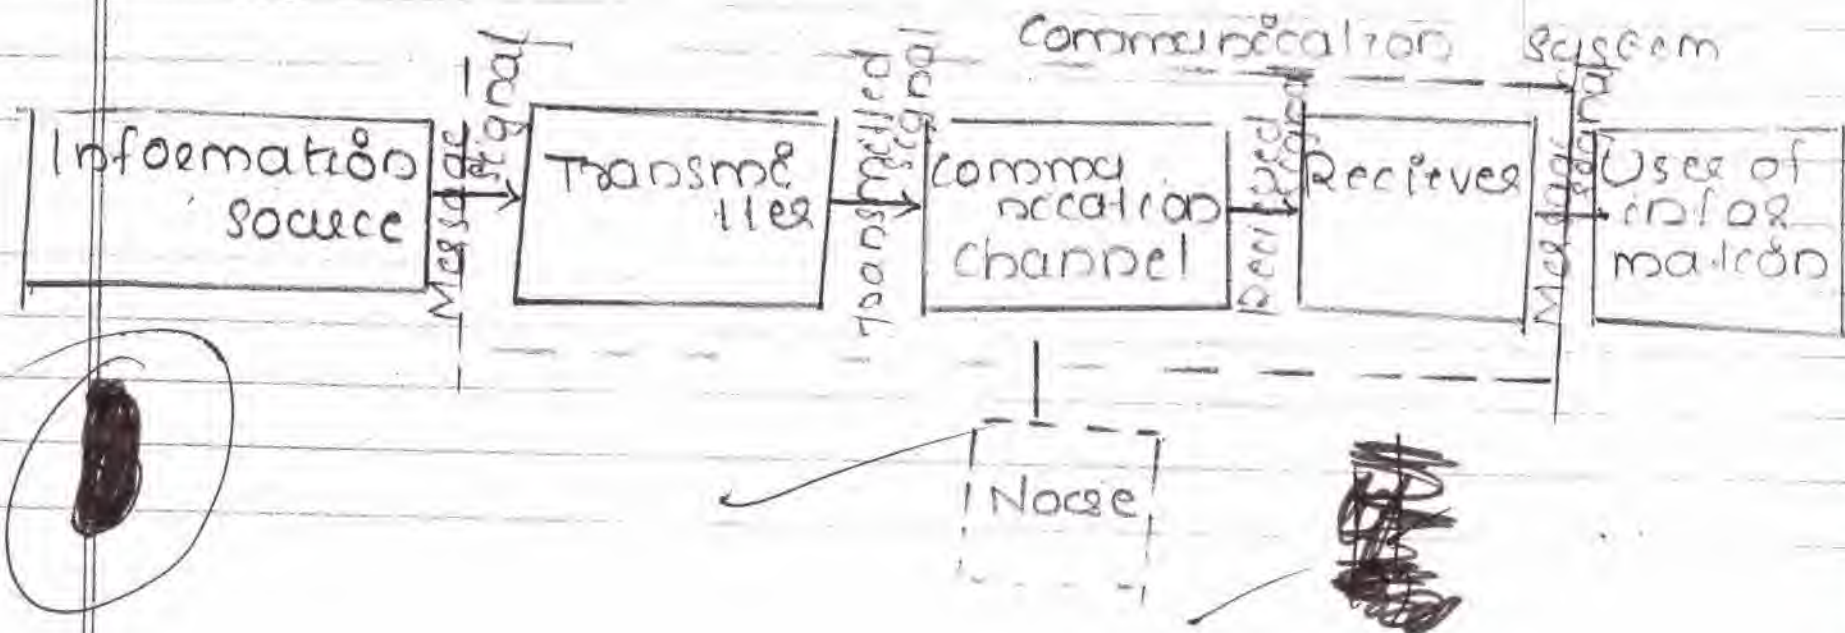 Communication System
Information
Source
Message
signal
Transmi
tter
Transmitted
signal
Commu
nication
channel
Recieved
signal
Reciever
Message
signal
User of
infor
mation
Noise